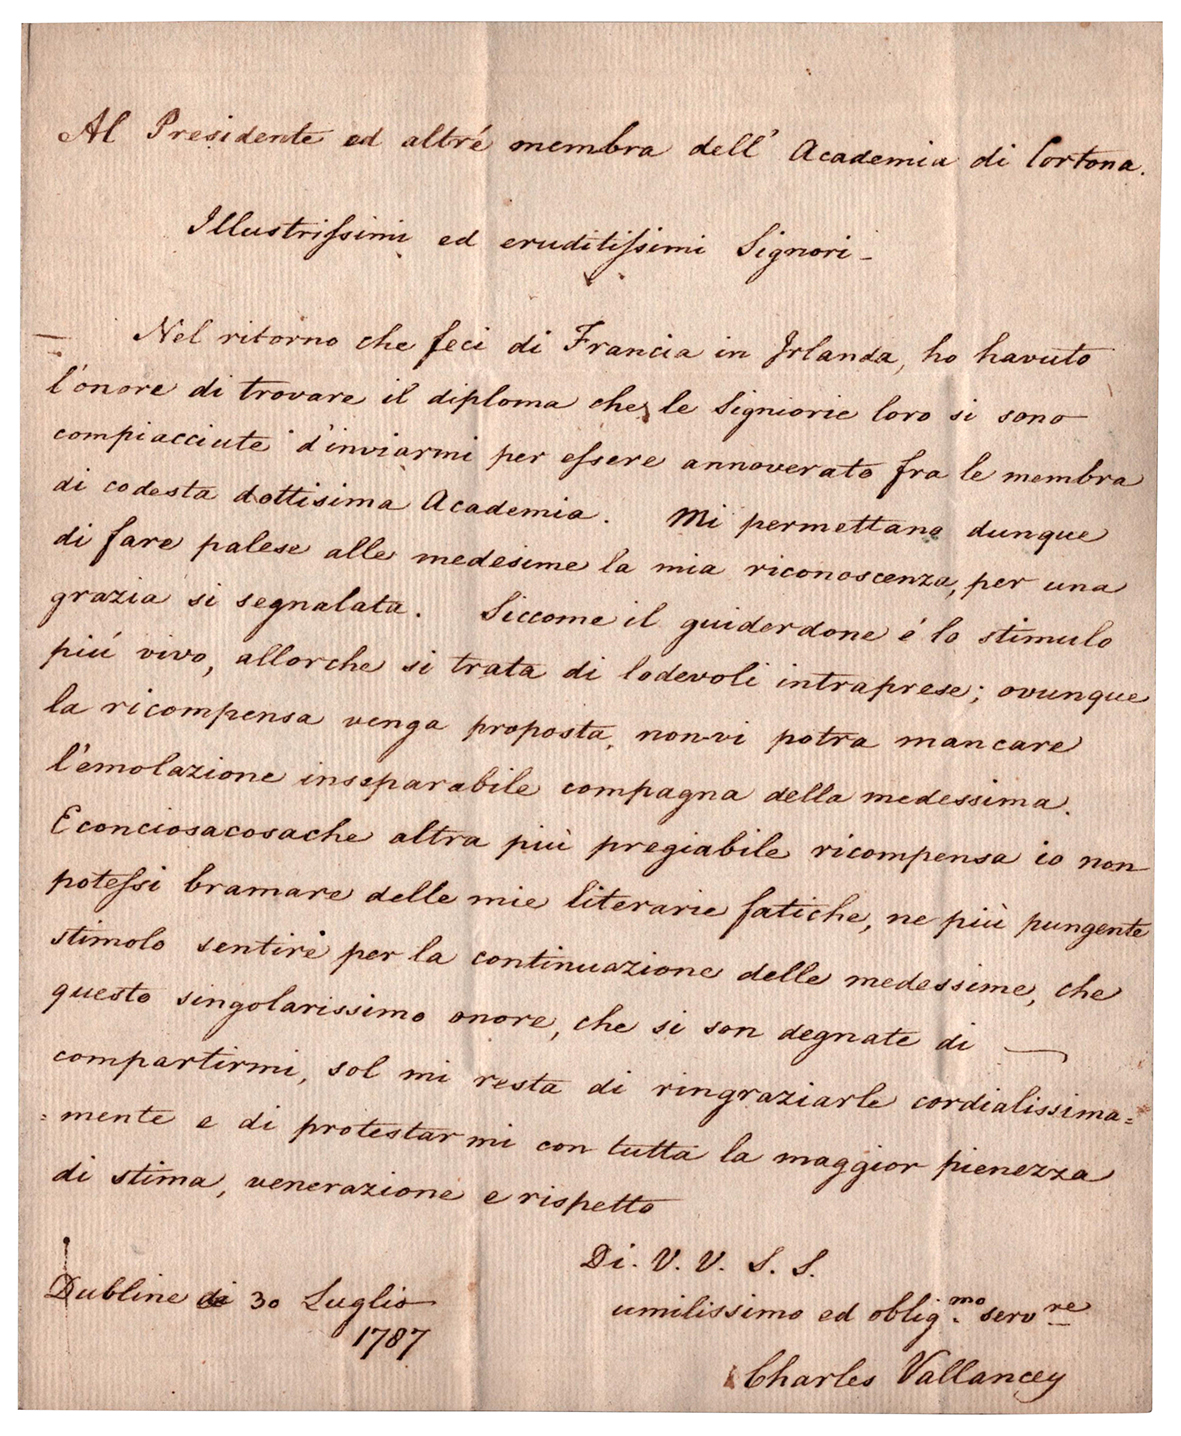 Al Presidente ed altré membra dell' Academia di Cortona.
Illustrissimi ed eruditissimi Signori -
Nel ritorno che feci di Francia in Irlanda, ho havuto
l'onore di trovare il diploma che le Signiorie loro si sono
compiacciute d'inviarmi per essere annoverato fra le membra
di codesta dottisima Academia. Mi permettano dunque
di fare palese alle medesime la mia riconoscenza, per una
grazia si segnalata. Siccome il guiderdone é lo stimulo
piú vivo, allorche si trata di lodevoli intraprese; ovunque
la ricompensa venga proposta, non vi potra mancare
l'emolazione inseparabile compagna della medessima.
E conciosacosache altra più pregiabile ricompensa io non
potessi bramare delle mie literarie fatiche, ne più pungente
stimolo sentire per la continuazione delle medessime, che
questo singolarissimo onore, che si son degnate di
compartirmi, sol mi resta di ringraziarle cordialissima=
=mente e di protestarmi con tutta la maggior pienezza
di stima, venerazione e rispetto
Di. V. V. S. S.
umilissimo ed oblig.mo servre
Charles Vallancey
Dubline di 30 Luglio
1787